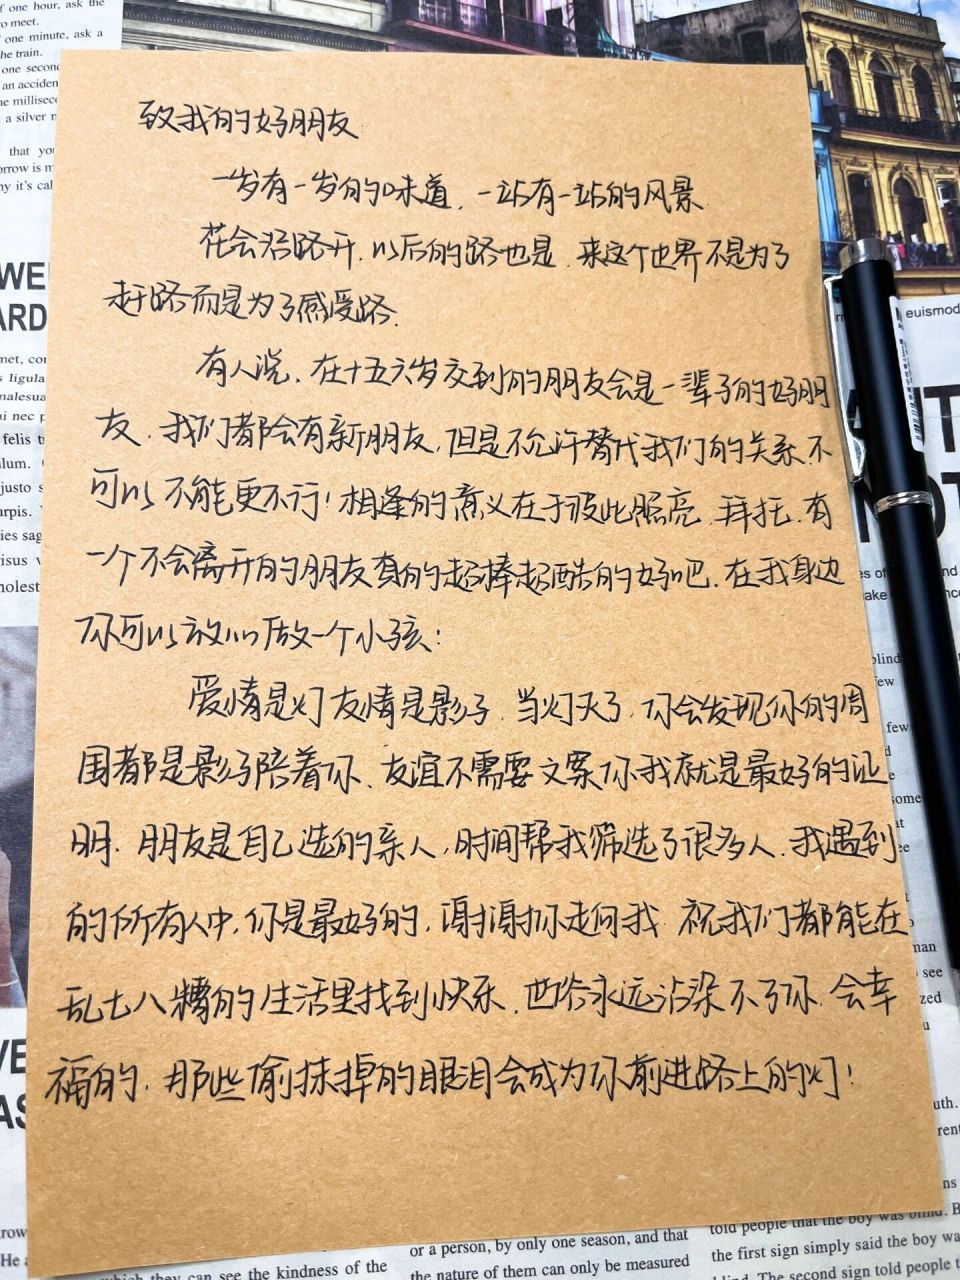 致我的好朋友
一岁有一岁的味道，一站有一站的风景
花会沿路开，以后的路也是，来这个世界不是为了
赶路而是为了感受路.
有人说，在十五六岁交到的朋友会是一辈子的好朋
友，我们都会有新朋友，但是不允许替代我们的关系，不
可以 不能更不行！相逢的意义在于彼此照亮，拜托，有
一个不会离开的朋友真的超棒超酷的好吧，在我身边
你可以放心做一个小孩！
爱情是灯 友情是影子，当灯灭了，你会发现你的周
围都是影子陪着你、友谊不需要文案你我就是最好的证
明. 朋友是自己选的亲人，时间帮我筛选了很多人，我遇到
的所有人中，你是最好的，谢谢你走向我 祝我们都能在
乱七八糟的生活里找到快乐，世俗永远沾染不了你，会幸
福的，那些偷抹掉的眼泪会成为你前进路上的灯！
of one hour, ask the
to meet.
of one minute, ask a
the train.
one second
an acciden
a silver
that you
euismod
told people that the boy was blind. B
the first sign simply said the boy wa
blind. The second sign told people t
or a person, by only one season, and that
the nature of them can only be measured
which they can see the kindness of the
He